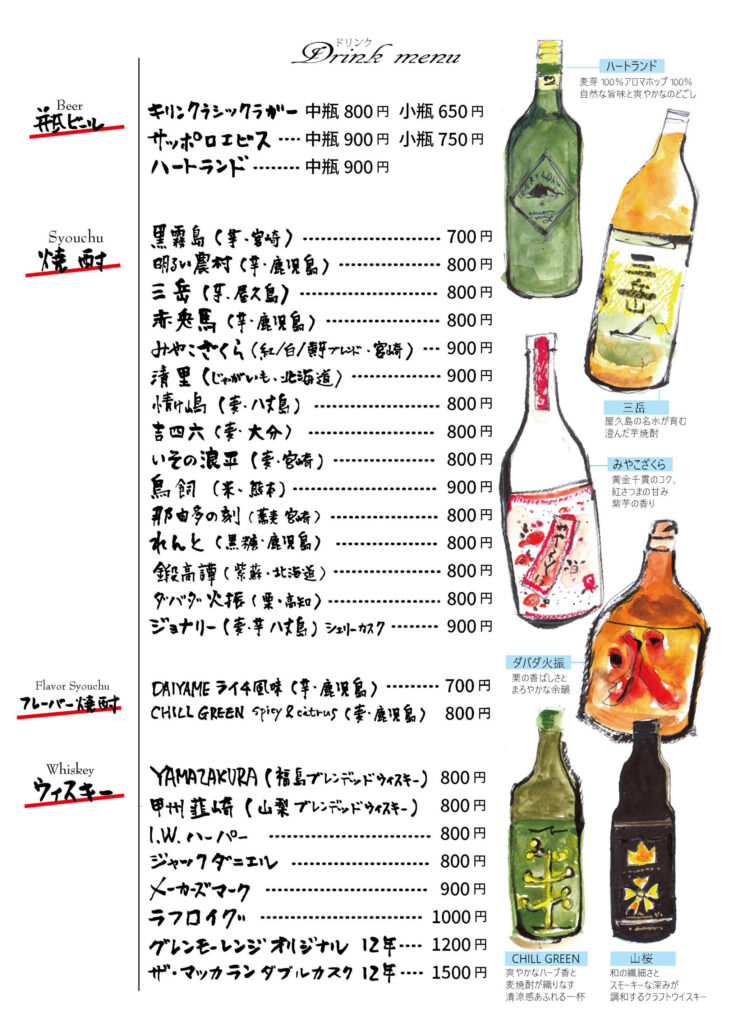 ドリンク
Drink menu
Beer
瓶ビール
キリンクラシックラガー 中瓶 800円 小瓶 650円
サッポロエビス ···· 中瓶 900円 小瓶 750円
ハートランド ········ 中瓶 900円
Syouchu
焼酎
黒霧島（芋・宮崎） ······················ 700円
明るい農村（芋・鹿児島） ················ 800円
三岳（芋、屋久島） ······················ 800円
赤兎馬（芋・鹿児島） ···················· 800円
みやこざくら（紅/白/黄芋ブレンド・宮崎） ··· 900円
清里（じゃがいも・北海道） ·············· 900円
情け嶋（麦・八丈島） ···················· 800円
吉四六（麦・大分） ······················ 800円
いその浪平（麦・宮崎） ·················· 800円
鳥飼（米・熊本） ························ 900円
那由多の刻（蕎麦 宮崎） ················· 800円
れんと（黒糖・鹿児島） ·················· 800円
鍛高譚（紫蘇・北海道） ·················· 800円
ダバダ火振（栗・高知） ·················· 800円
ジョナリー（麦・芋 八丈島）シェリーカスク ······ 900円
Flavor Syouchu
フレーバー焼酎
DAIYAME ライチ風味（芋・鹿児島） ········· 700円
CHILL GREEN spicy & citrus（麦・鹿児島） 800円
Whiskey
ウィスキー
YAMAZAKURA（福島ブレンデッドウィスキー） 800円
甲州韮崎（山梨ブレンデッドウィスキー） 800円
I.W.ハーパー ···················· 800円
ジャックダニエル ················ 800円
メーカーズマーク ················ 900円
ラフロイグ ······················ 1000円
グレンモーレンジオリジナル 12年···· 1200円
ザ・マッカランダブルカスク 12年···· 1500円
ハートランド
麦芽 100%アロマホップ 100%
自然な旨味と爽やかなのどごし
三岳
三岳
屋久島の名水が育む
澄んだ芋焼酎
みやこざくら
みやこざくら
黄金千貫のコク、
紅さつまの甘み
紫芋の香り
ダバダ火振
栗の香ばしさと
まろやかな余韻
火
CHILL GREEN
爽やかなハーブ香と
麦焼酎が織りなす
清涼感あふれる一杯
山桜
和の繊細さと
スモーキーな深みが
調和するクラフトウイスキー